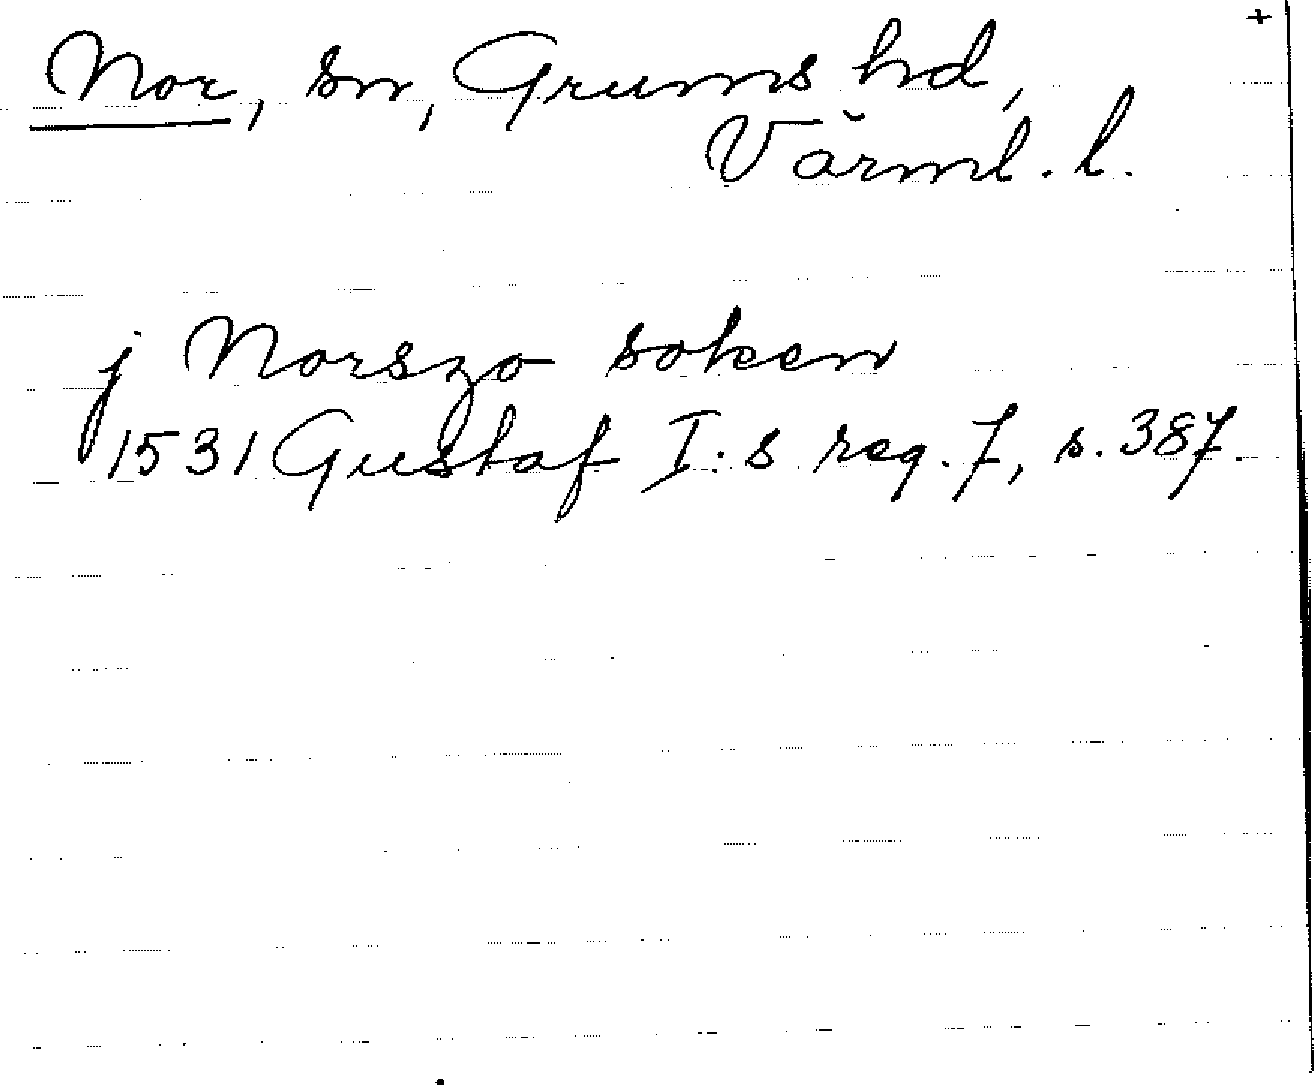 +
Nor, sn, Grums hd,
Värml. l.
j Norszo soken
1531 Gustaf I:s reg. 7, s. 387